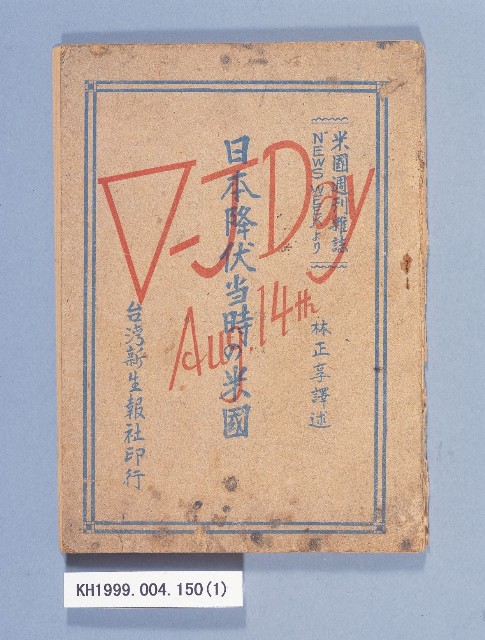 米國週刊雜誌
"NEWS WEEK"より
日本降伏当時の米國
V-J Day
Aug. 14th
林正享譯述
台湾新生報社印行
KH1999.004.150(1)